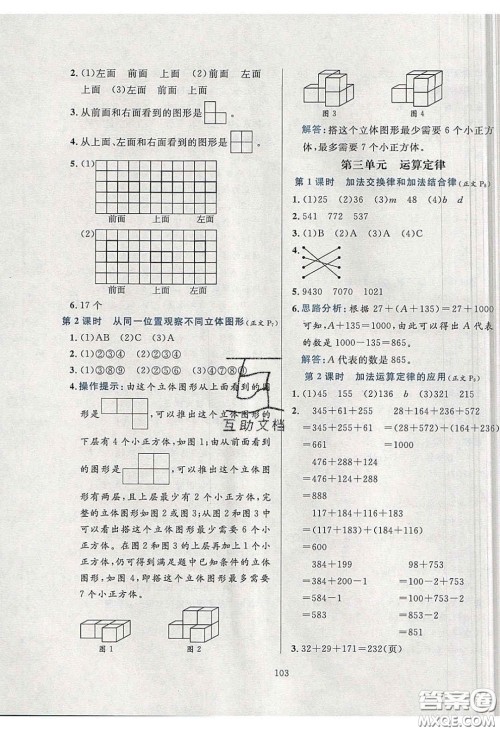 2. (1)左面　前面　上面　(2)左面　前面
上面　(3)左面　前面　上面
3. 从前面和右面看到的图形是
4. 从上面、左面看到的图形是
5. (1)
前面　上面　左面
(2)
前面　上面　左面
6. 17个
第2课时　从同一位置观察不同立体图形(正文P7)
1. (1)A　(2)B　(3)A
2. (1)②③④　(2)①③④
3. (1)⑤⑧⑨　(2)①③　(3)④⑦⑧⑨
4. 操作提示：由这个立体图形从上面看到的
图形是　，可以推出这个立体图形的
下层有4个小正方体，由从前面看到
的图形是　，可以推出这个立体
图形有两层，且上层最少有2个小正方体，完
整的立体图形如图2或图3；从图2和图3中
可以看出搭这个立体图形最少需要6个小正
方体。在图2和图3的上层再加1个小正方
体，仍可得到满足题中已知条件的立体
图形，如图4，即搭这个立体图形最多需要
7个小正方体。
图1　图2
图3　图4
解答：搭这个立体图形最少需要6个小正方
体，最多需要7个小正方体。
第三单元　运算定律
第1课时　加法交换律和加法结合律(正文P8)
1. (1)25　(2)36　(3)m　48　(4)b　d
2. 541　772　537
3. (1)B　(2)C　(3)A
4.
5. 9430　7070　1021
6. 思路分析：根据27+(A+135)=27+1000
可知，A+135与1000相等，所以A代表
的数是1000-135=865。
解答：A代表的数是865。
第2课时　加法运算定律的应用(正文P9)
1. (1)45　155　(2)152　48
2. 345+61+255　28+564+236+172
=345+255+61　=(28+172)+(564+236)
=661　=1000
476+288+124
=476+124+288
=888
117+184+116+183
=(117+183)+(184+116)
=600
384+199　98+753
=384+200-1　=100+753-2
=584-1　=853-2
=583　=851
3. 32+29+171=232(页)
103
互助文档
答案圈
MXQE.COM